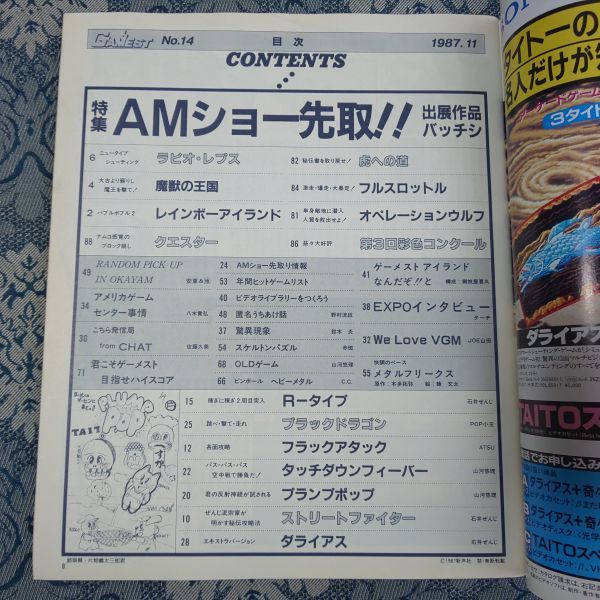 GAMEST No.14 目次 1987.11
CONTENTS
特集 AMショー先取!! 出展作品バッチシ
6 ニュータイプシューティング ラビオ・レプス
4 大古より蘇りし魔王を撃て! 魔獣の王国
2 バブルボブル2 レインボーアイランド
88 ナムコ感覚のブロック崩し クエスター
82 秘伝書を取り戻せ! 虎への道
84 激走・爆走・大暴走! フルスロットル
81 単身敵地に潜入人質を救出せよ! オペレーションウルフ
86 益々大好評 第3回彩色コンクール
49 RANDOM PICK UP
IN OKAYAM
34 アメリカゲーム
センター事情 八木貴弘
30 こちら発信局
from CHAT 佐藤久美
71 君こそゲーメスト
目指せハイスコア
24 AMショー先取り情報
53 年間ヒットゲームリスト
40 ビデオライブラリーをつくろう
48 匿名うちあけ話
37 驚異現象
54 スケルトンパズル
68 OLDゲーム 山河悠理
66 ピンボール ヘビーメタル C.C.
41 ゲーメストアイランド
なんだぞ!!と
38 EXPOインタビュー
32 We Love VGM JOE山田
快調のペース
55 メタルフリークス
15 稼ぎに稼ぎ2周目突入 Rータイプ 石井ぜんじ
25 跳べ・撃て・走れ ブラックドラゴン POP小玉
12 各面攻略 フラックアタック ATSU
22 パス・パス・パス空中戦で勝負だ! タッチダウンフィーバー 山河悠理
20 君の反射神経が試される プランプポップ 山河悠理
10 ぜんじ流宗家が明かす秘伝攻略法 ストリートファイター 石井ぜんじ
28 エキストラバージョン ダライアス 石井ぜんじ
TAIT
8
©1987新声社 禁・無断転載
タイトーの
名人だけが
3タイト
ダライアス
TAITOス
話でお申し込み
A ダライアス+奇々
B ダライアス+奇々
C TAITOスペ